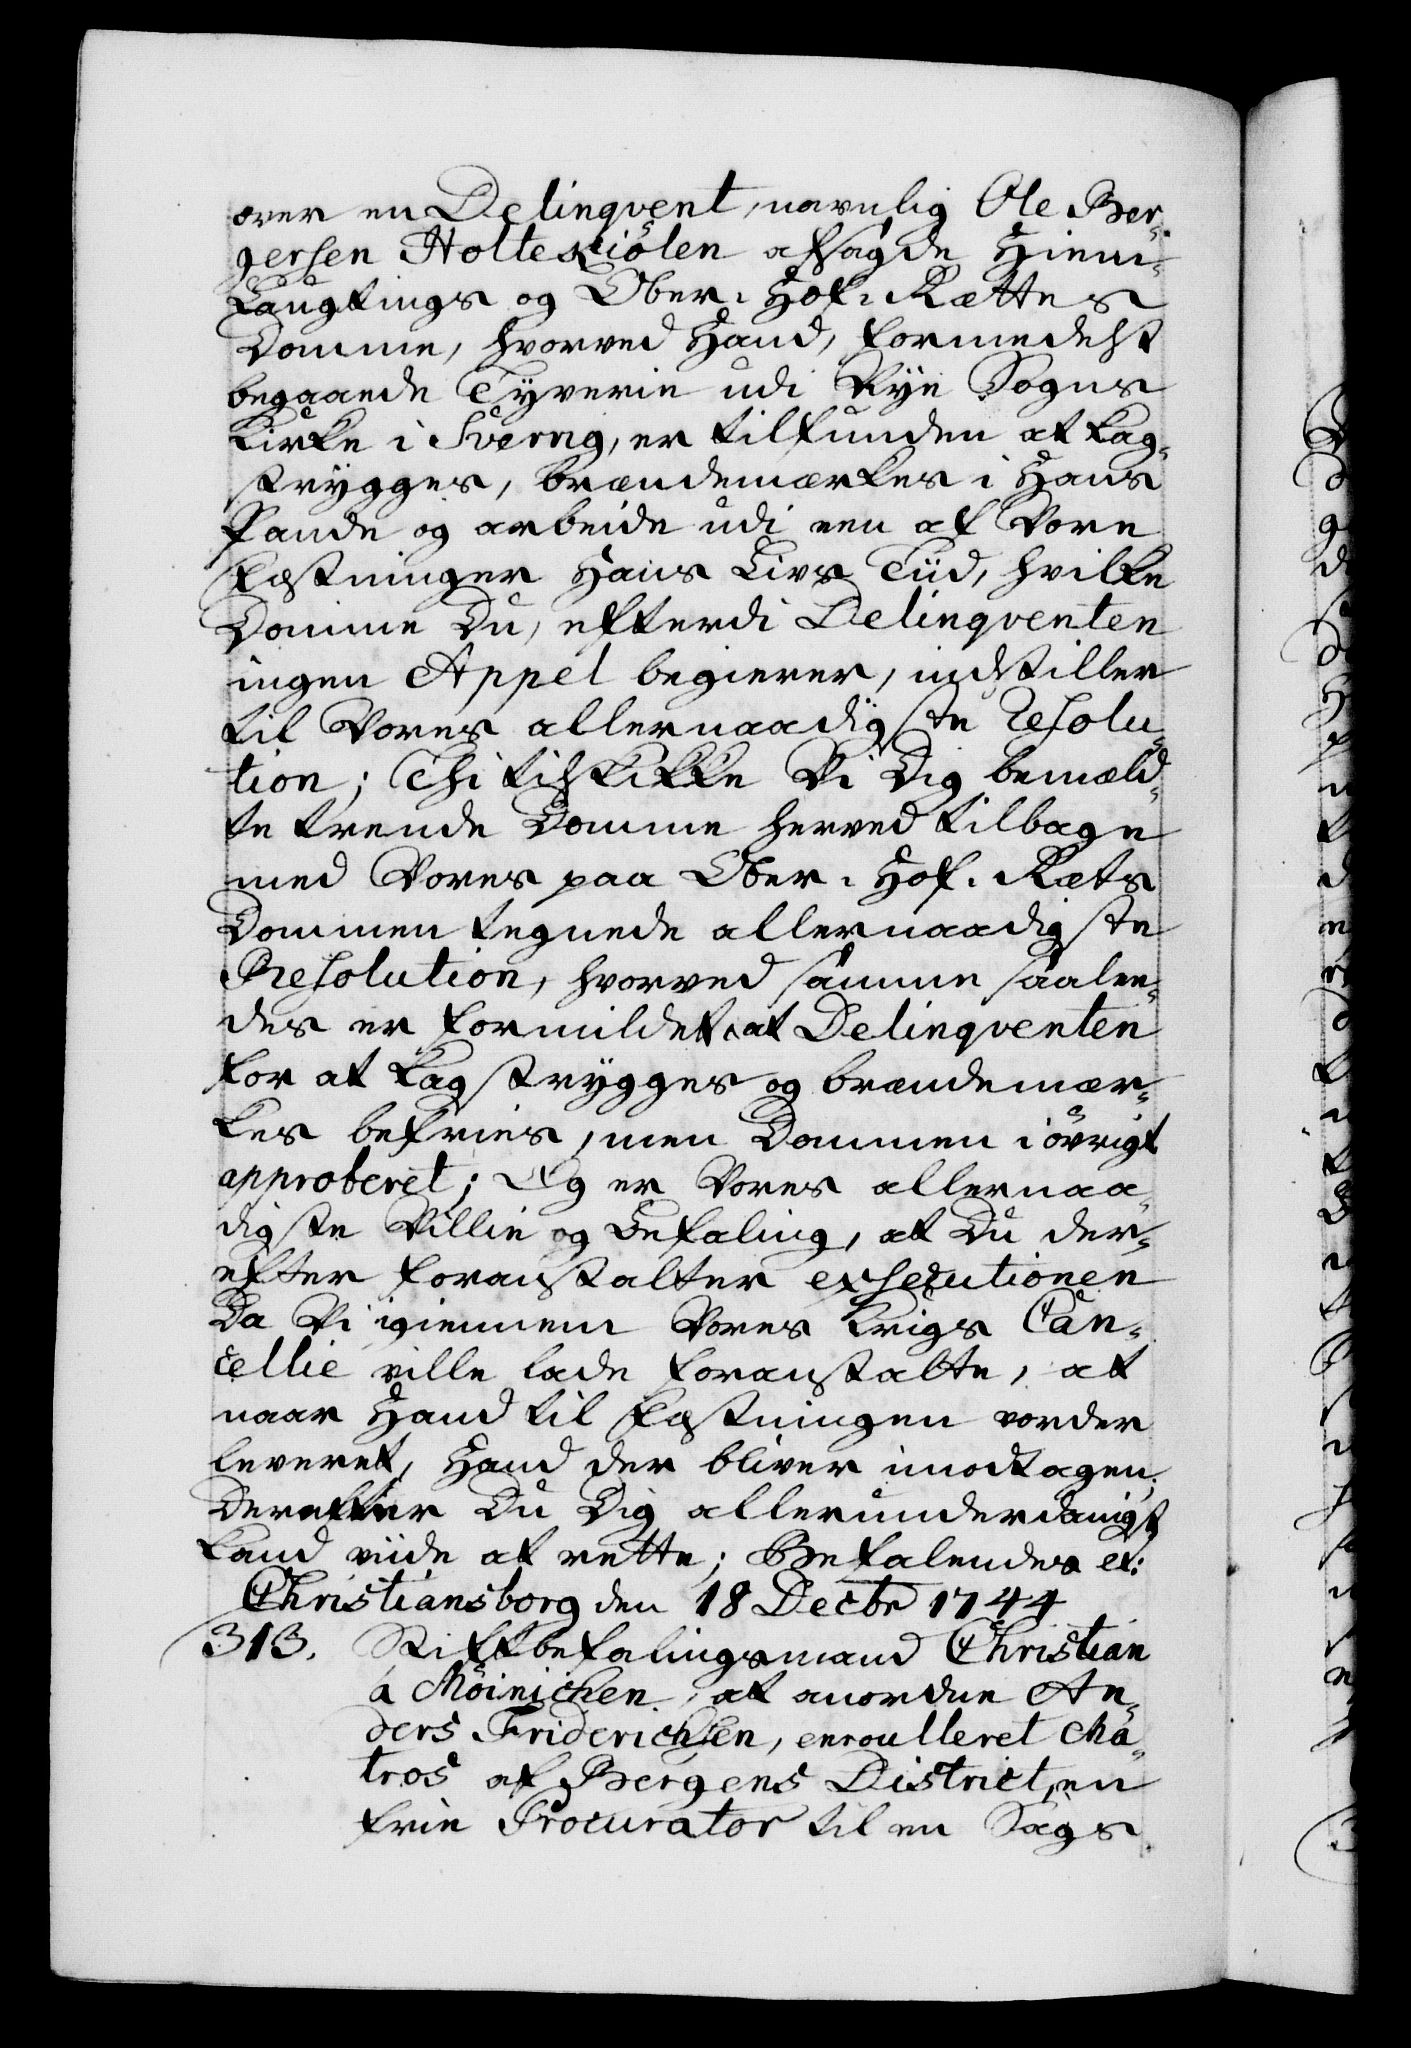 over en Delinqvent, navnlig Ole Ber-
gersen Holteskiölen afsagde Hiem-
Laugtings og Ober-Hof-Rættes
Domme, hvorved Hand, formedelst
begaaede Tyverie udi Rye Sogns
Kirke i Sverrig, er tilfunden at kag-
strygges, brændemærkes i Hans
Pande og arbeide udi een af Vore
Fæstninger Hans Livs Tiid, hvilke
Domme Du, efterdi Delinqventen
ingen Appel begierer, indstiller
til Vores allernaadigste Resolu-
tion; Thi tilskikke Vi Dig bemeld-
te trende Domme herved tilbage
med Vores paa Ober-Hof-Rets
Dommen tegnede allernaadigste
Resolution, hvorved samme saale-
des er formildet, at Delinqventen
for at kagstrygges og brændemær-
kes befries, men Dommen i övrigt
approberet; Og er Vores allernaa-
digste Villie og Befaling, at Du der-
efter foranstalter exsecutionen
Da Vi igiennem Vores Krigs Can-
cellie ville lade foranstalte, at
naar Hand til Fæstningen vorder
leveret, Hand der bliver imodtagen,
Derefter Du Dig allerunderdanigst
kand viide at rette; Befalendes etc:
Christiansborg den 18 Decbr 1744
313. Stiftbefalingsmand Christian
á Möinichen, at anordne An-
ders Friderichsen, enroulleret Ma-
tros af Bergens District, en
frie Procurator til en Sags